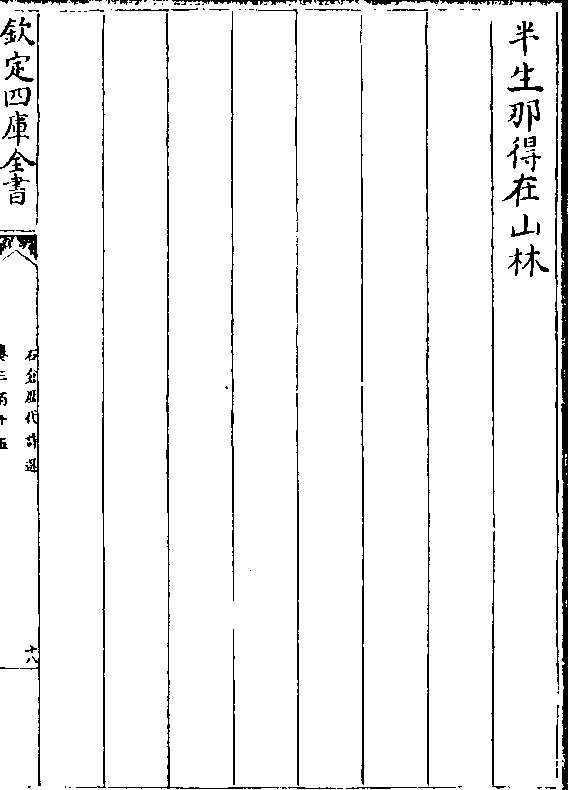 半生那得在山林
欽定四庫全書
石倉歷代詩選
卷三百十五
十八